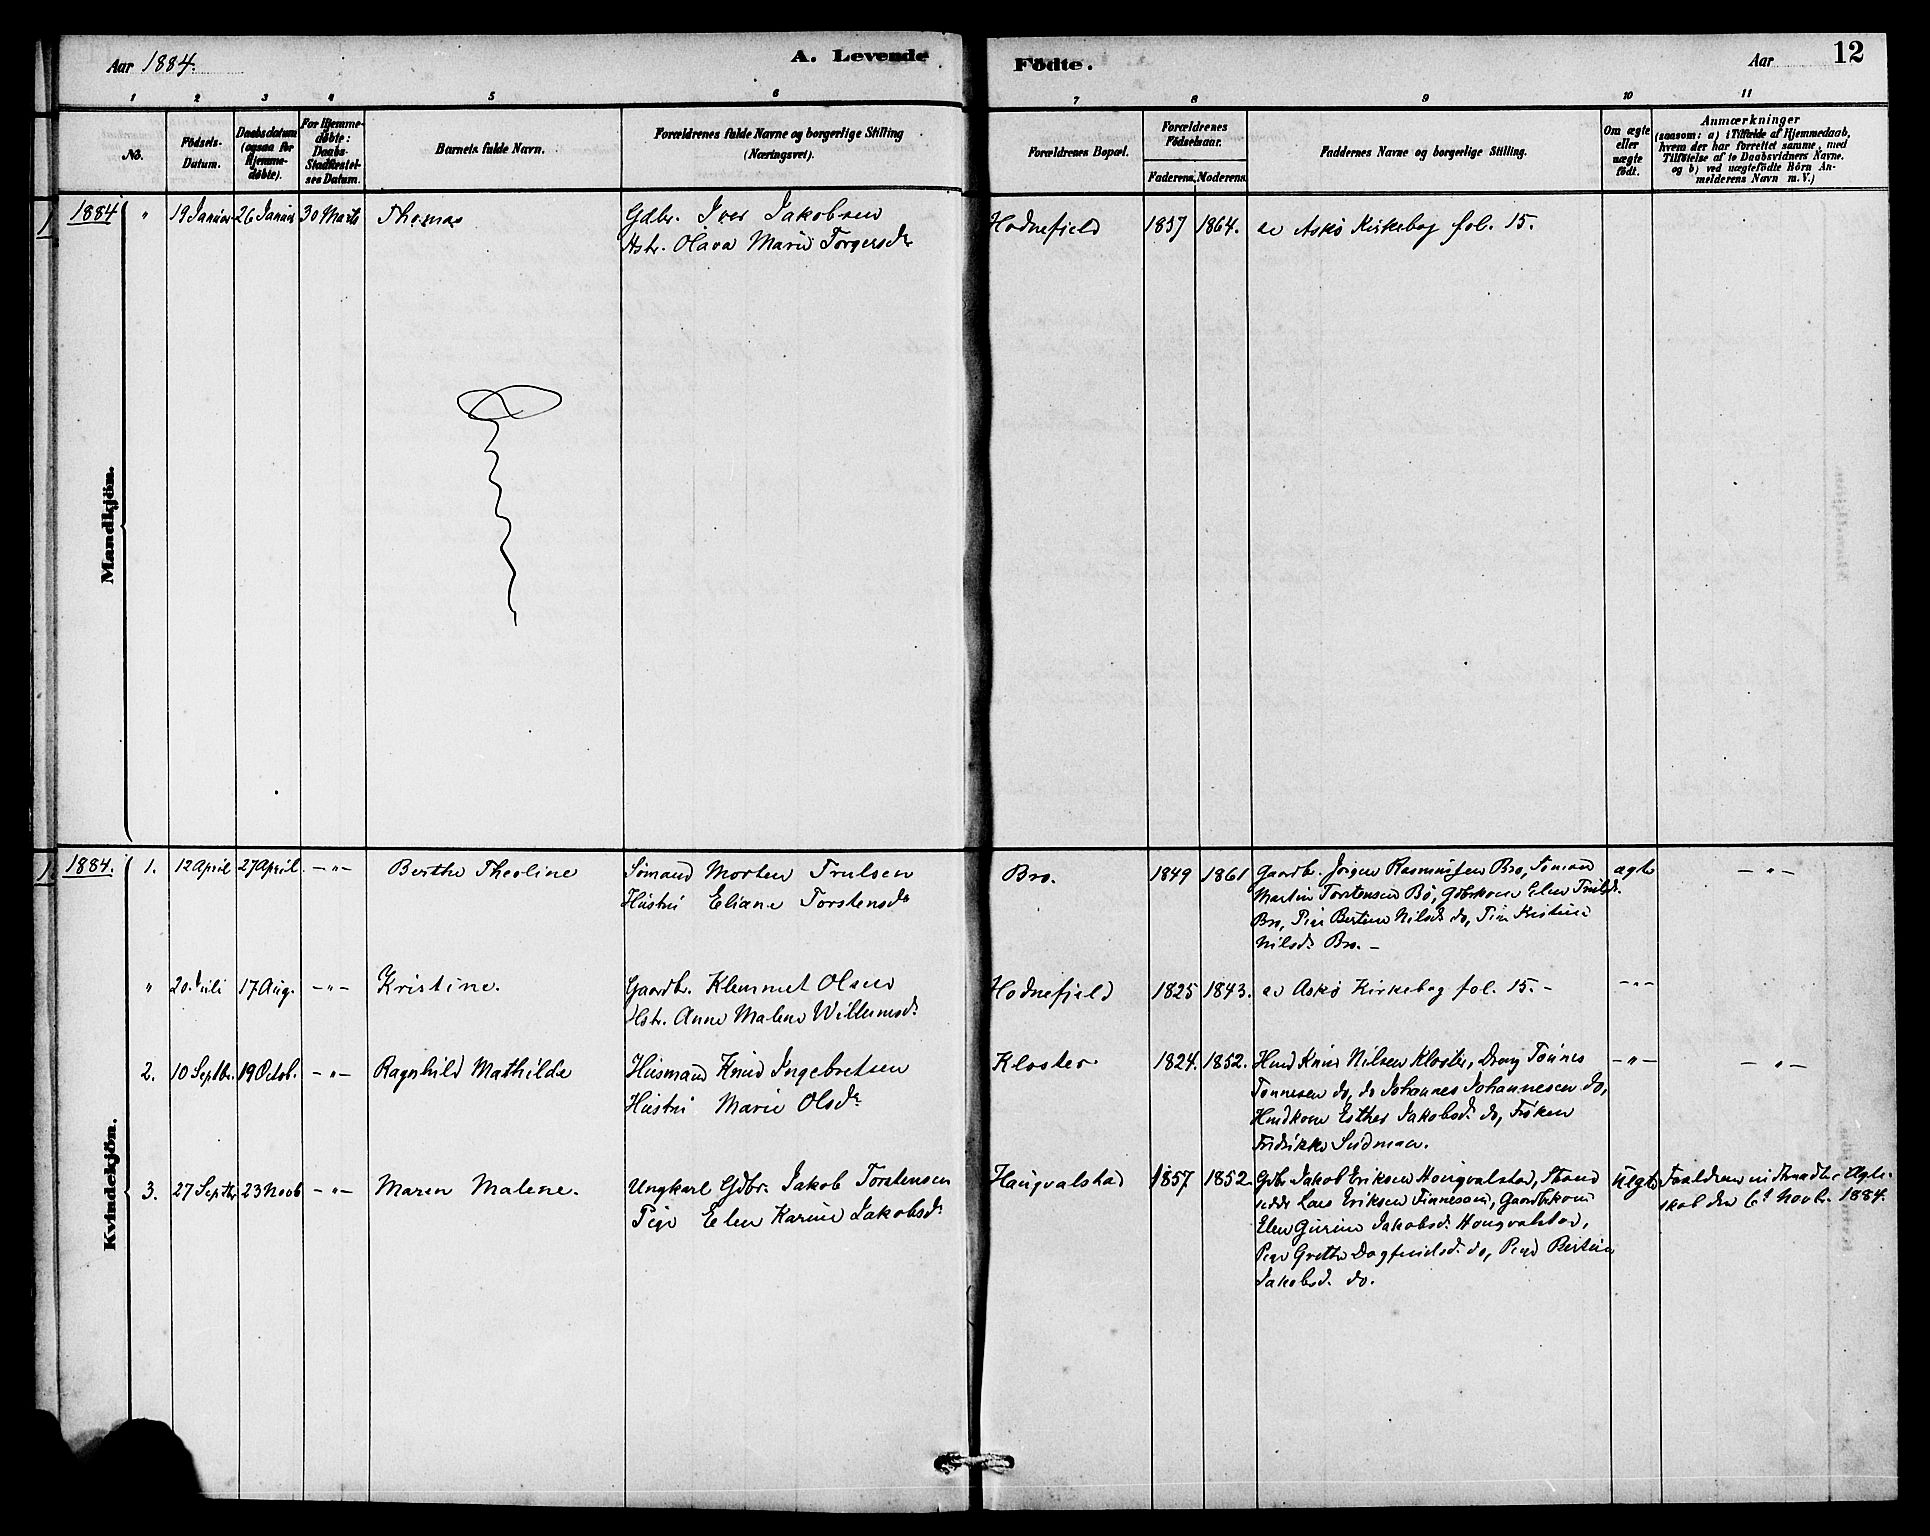 Aar 1884.
A. Levende
Födte.
Aar
12
1 2 3 4 5 6 7 8 9 10 11
No.
Födsels-
Datum.
Daabsdatum
(ogsaa for
Hjemme-
döbte).
For Hjemme-
döbte:
Daabs-
Stadfæstel-
ses Datum.
Barnets fulde Navn.
Forældrenes fulde Navne og borgerlige Stilling
(Næringsvei).
Forældrenes Bopæl.
Forældrenes
Födselsaar.
Faderens. Moderens.
Faddernes Navne og borgerlige Stilling.
Om ægte
eller
uægte
födt.
Anmærkninger
(saasom: a) i Tilfælde af Hjemmedaab,
hvem der har forrettet samme, med
Tilföielse af to Daabsvidners Navne.
og b) ved uægtefödte Börn An-
melderens Navn m. V.)
Mandkjön.
1884 " 19 Januar 26 Januar 30 Marts Thomas
Gdbr. Iver Jakobsen
Hstr. Olava Marie Torgersdr
Hodnefjeld 1857 1864. se Askö Kirkebog fol. 15.
Kvindekjön.
1884. 1. 12 April 27 April. -"- Berthe Theoline
Sömand Morten Trulsen
Hustru Eliane Torstensdr
Bro. 1849 1861
Gaardb. Jörgen Rasmussen Bro, Sömand
Martin Torstensen Bö, Gdbrkone Elen Trulsd.
Bro, Pige Bertine Nilsd. do, Pige Kristine
Nilsd. Bro. -
ægte -"-
" 20. Juli 17 Aug. -"- Kristine.
Gaardbr. Klemmet Olsen
Hstr. Anne Malene Willumsd.
Hodnefjeld 1825 1843. se Askö Kirkebog fol. 15. - -"-
2. 10 Septbr. 19 Octob. -"- Ragnhild Mathilde
Husmand Knud Ingebretsen
Hustru Marie Olsdr
Kloster 1824. 1852.
Husmd Knud Nilsen Kloster, Dreng Tönnes
Tönnesen do, do Johannes Johannesen do,
Husmdkone Esther Jakobsd. do, Fröken
Fredrikke
-"- -"-
3. 27 Septbr 23 Novb -"- Maren Malene.
Ungkarl Gdbr. Jakob Torstensen
Pige Elen Karine Jakobsd.
Haugvalstad 1857 1852
Gdbr Jakob Eriksen Hougvalstad, Strand
sidder Lars Eriksen Finnesand, Gaardbrkone
Elen Gurine Jakobsd. Hougvalstad,
Pige Grethe Dagfinsd. do, Pige Bertine
Jakobsd. do.
Uægte
Forældrene indtraadte i Ægte-
skab den 6t Novb. 1884.